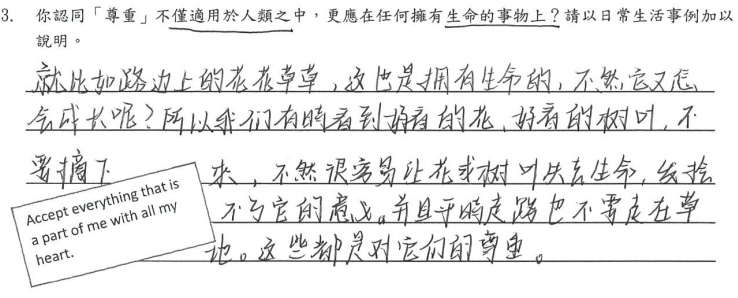 3. 你認同「尊重」不僅適用於人類之中，更應在任何擁有生命的事物上？請以日常生活事例加以
說明。
就比如路边上的花花草草，这也是拥有生命的，不然它又怎
会成长呢？所以我们有時看到好看的花、好看的树叶，不
要摘下來，不然很容易让花或树叶失去生命，
不了它的意义。并且平時走路也不要走在草
地。这些都是对它们的尊重。
Accept everything that is
a part of me with all my
heart.